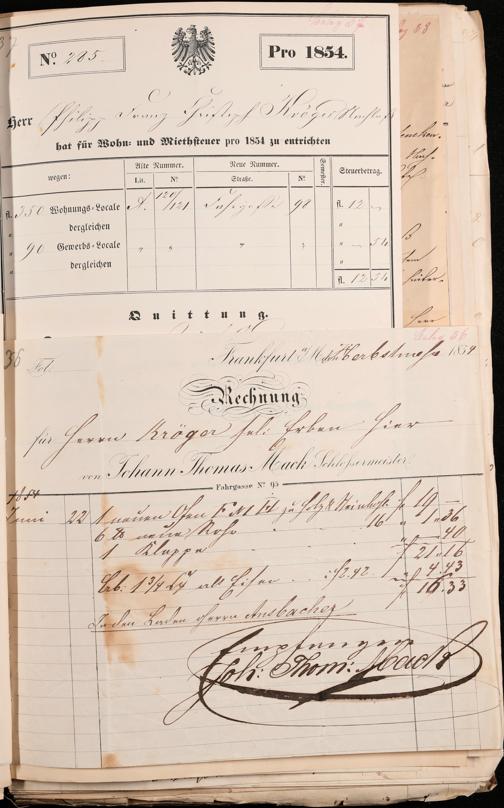 No. 285.
Pro 1854.
Herr Philipp Franz Kröger
hat für Wohn- und Miethsteuer pro 1854 zu entrichten
wegen: Alte Nummer. Neue Nummer. Steuerbetrag.
Lit. No. Straße. No.
fl. 350 Wohnungs-Locale A. 120/121 98 fl. 12 —
dergleichen
" 90 Gewerbs-Locale " " " " " 54
dergleichen
fl. 12 54
Quittung.
36
Fol.
Frankfurt a/M Herbstmonat 1854
Rechnung
für Herrn Kröger sel: Erben hier
von Johann Thomas Mack Schlossermeister
Fahrgasse No. 95
1854
Juni 22 1 neuen Ofen No 14 zu Holz & Steinkohle f 19 —
6 lb neue Rohr 16 " 1 " 36
1 Klappe " — 40
f 21 " 16
alt Eisen f 2.42 " 4.43
f 16.33
In den Laden Herrn Ansbacher
Empfangen
Joh: Thom: Mack